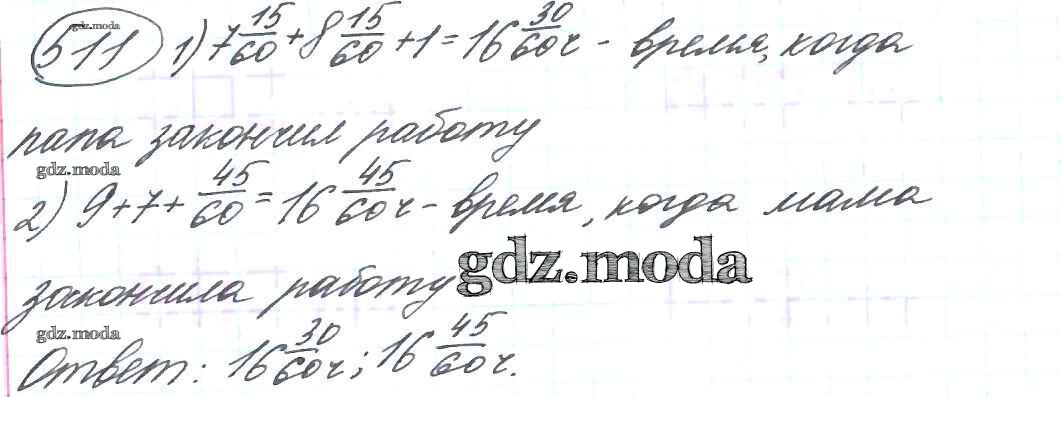 gdz.moda
511 1) 7 15/60 + 8 15/60 + 1 = 16 30/60 ч - время, когда
папа закончил работу
gdz.moda
2) 9 + 7 + 45/60 = 16 45/60 ч - время, когда мама
gdz.moda
закончила работу
gdz.moda
Ответ: 16 30/60 ч; 16 45/60 ч.